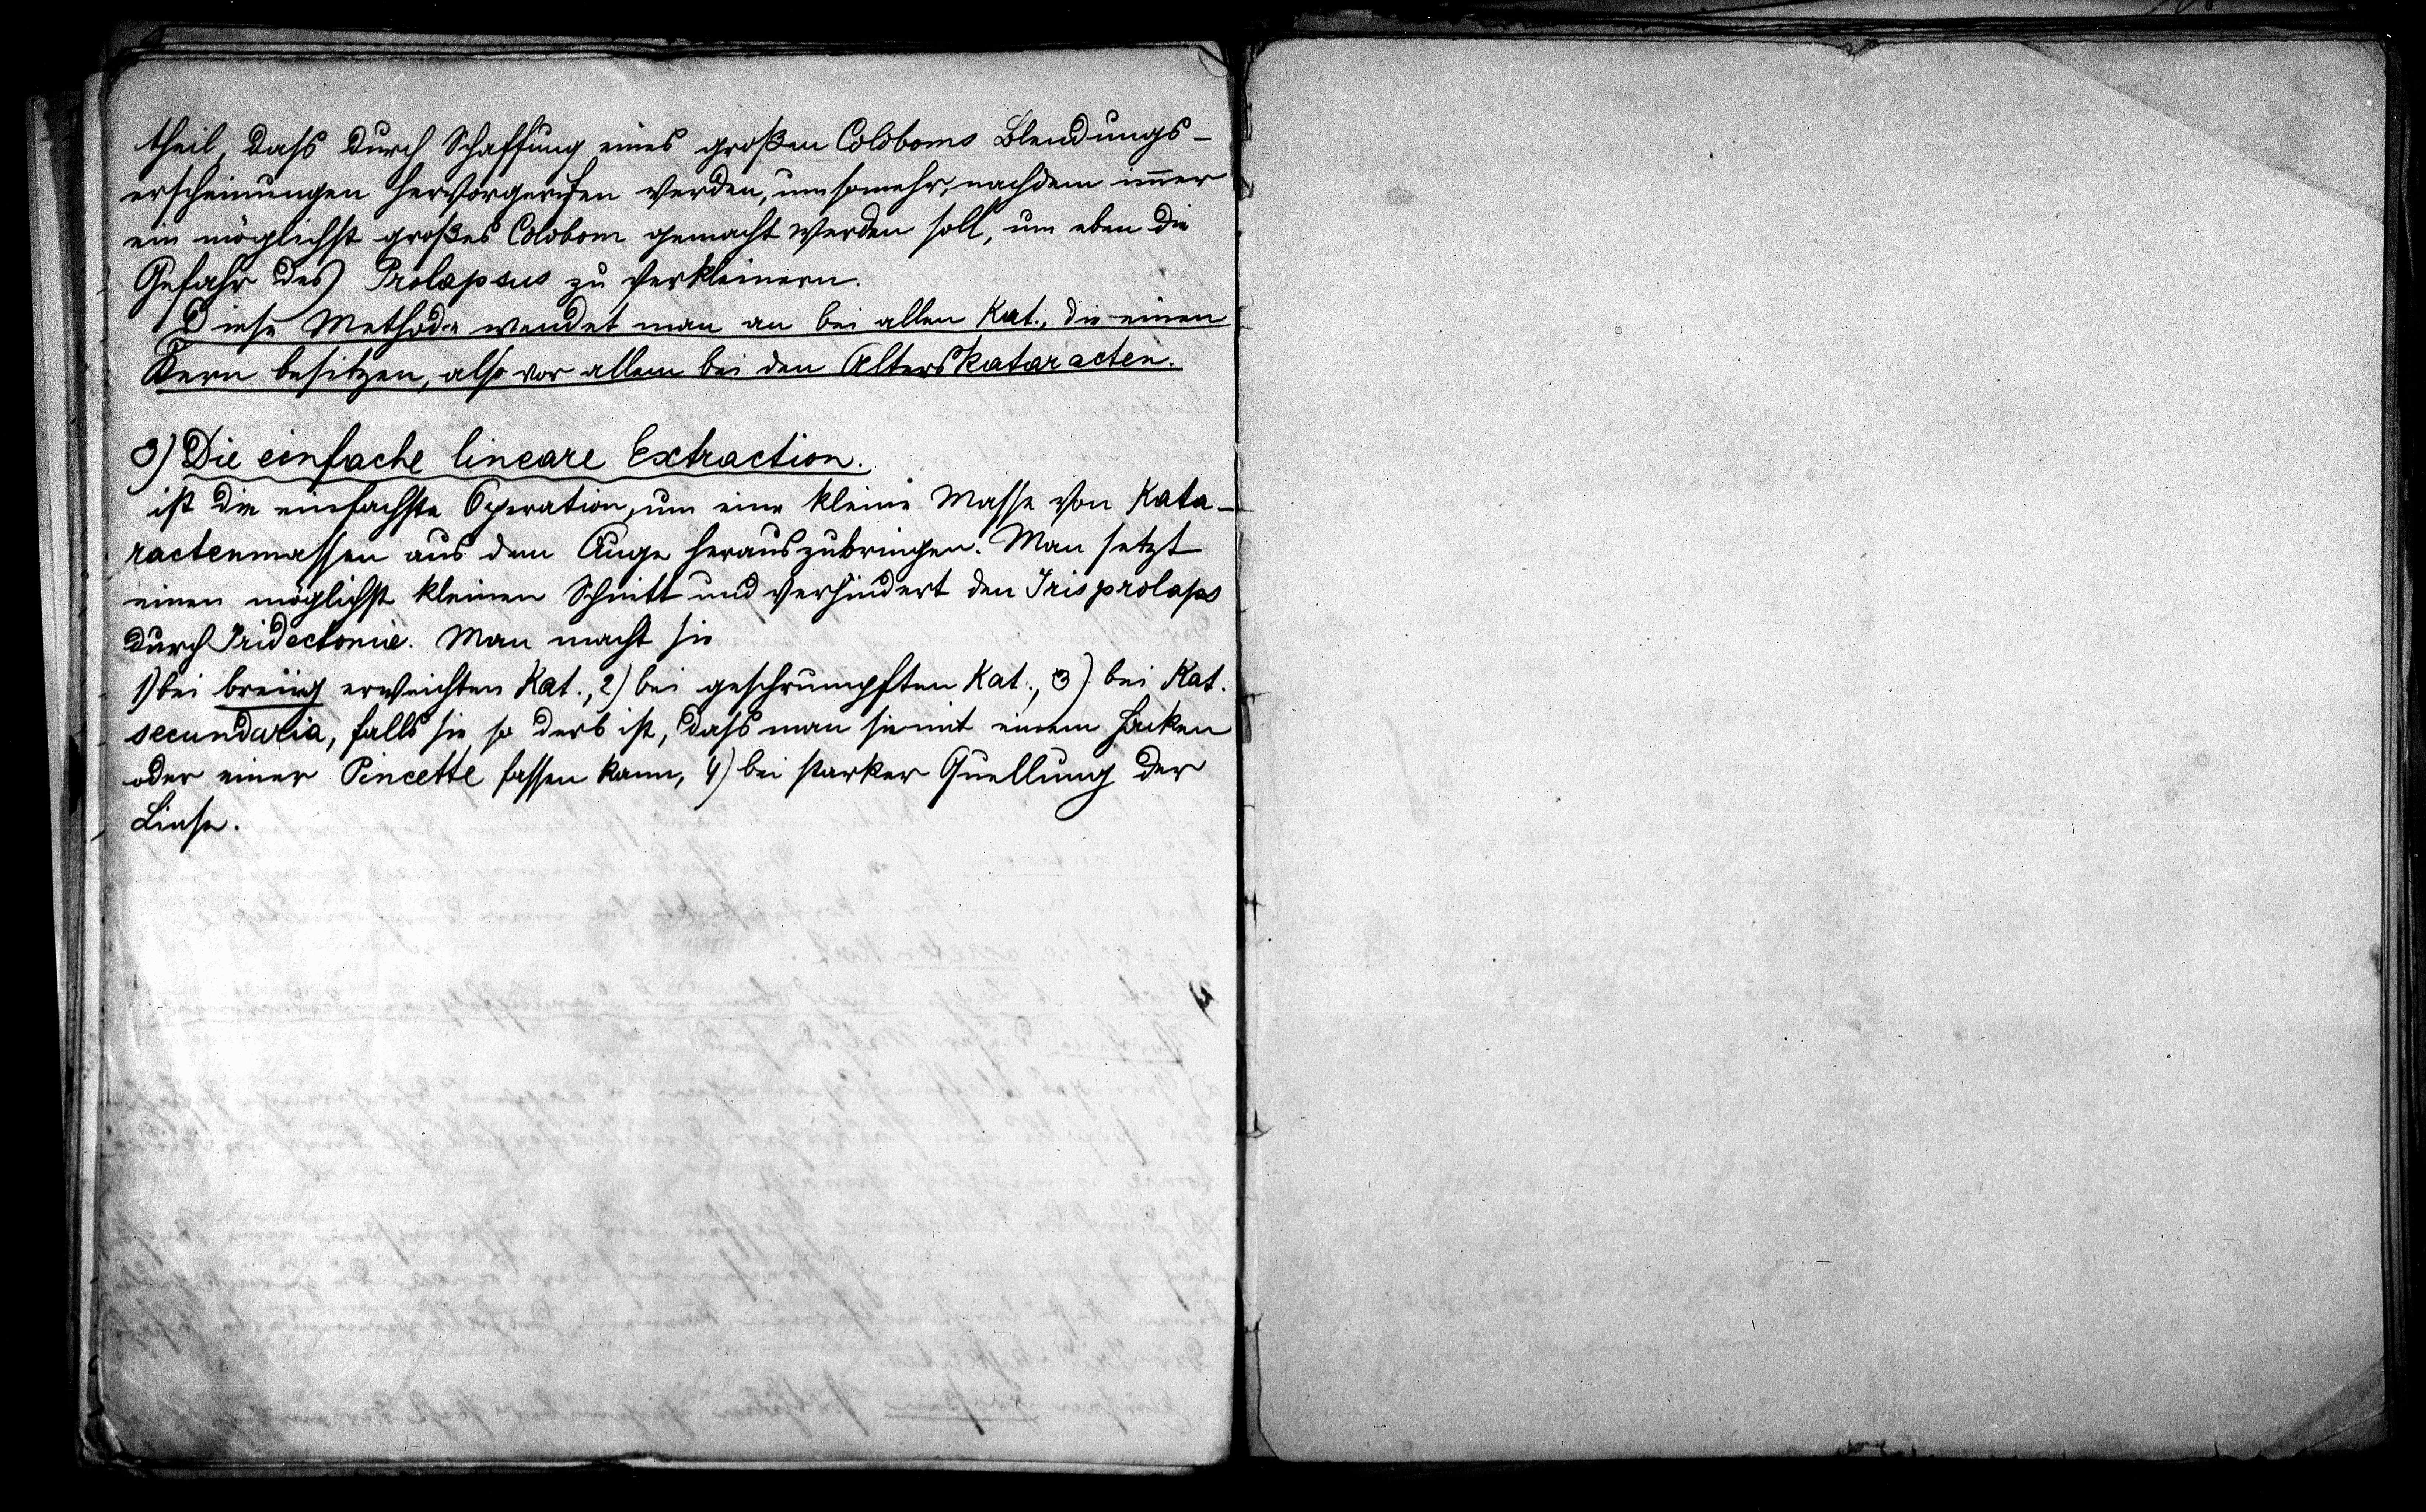 theil, dass durch Schaffung eines großen Coloboms Blendungs-
erscheinungen hervorgerufen werden, umsomehr, nachdem im̅er
ein möglichst großes Colobom gemacht werden soll, um eben die
Gefahr des Prolapsus zu verkleinern.
Diese Methode wendet man an bei allen Kat., die einen
Kern besitzen, also vor allem bei den Alterskataracten.
3) Die einfache lineare Extraction.
ist die einfachste Operation, um eine kleine Masse von Kata-
ractenmassen aus dem Auge herauszubringen. Man setzt
einen möglichst kleinen Schnitt und verhindert den Irisprolaps
durch Iridectomie. Man macht sie
1) bei breiig erweichten Kat., 2) bei geschrumpften Kat., 3) bei Kat.
secundaria, falls sie so derb ist, dass man sie mit einem Hacken
oder einer Pincette fassen kann, 4) bei starker Quellung der
Linse.